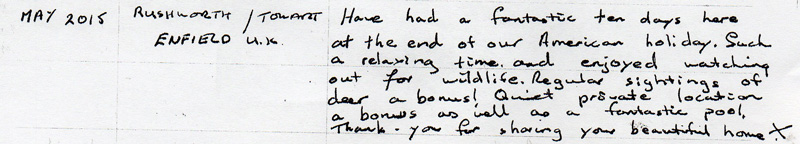 MAY 2015 RUSHWORTH / TOWART Have had a fantastic ten days here
ENFIELD U.K. at the end of our American holiday. Such
a relaxing time. and enjoyed watching
out for wildlife. Regular sightings of
deer a bonus! Quiet private location
a bonus as well as a fantastic pool.
Thank-you for sharing your beautiful home. X